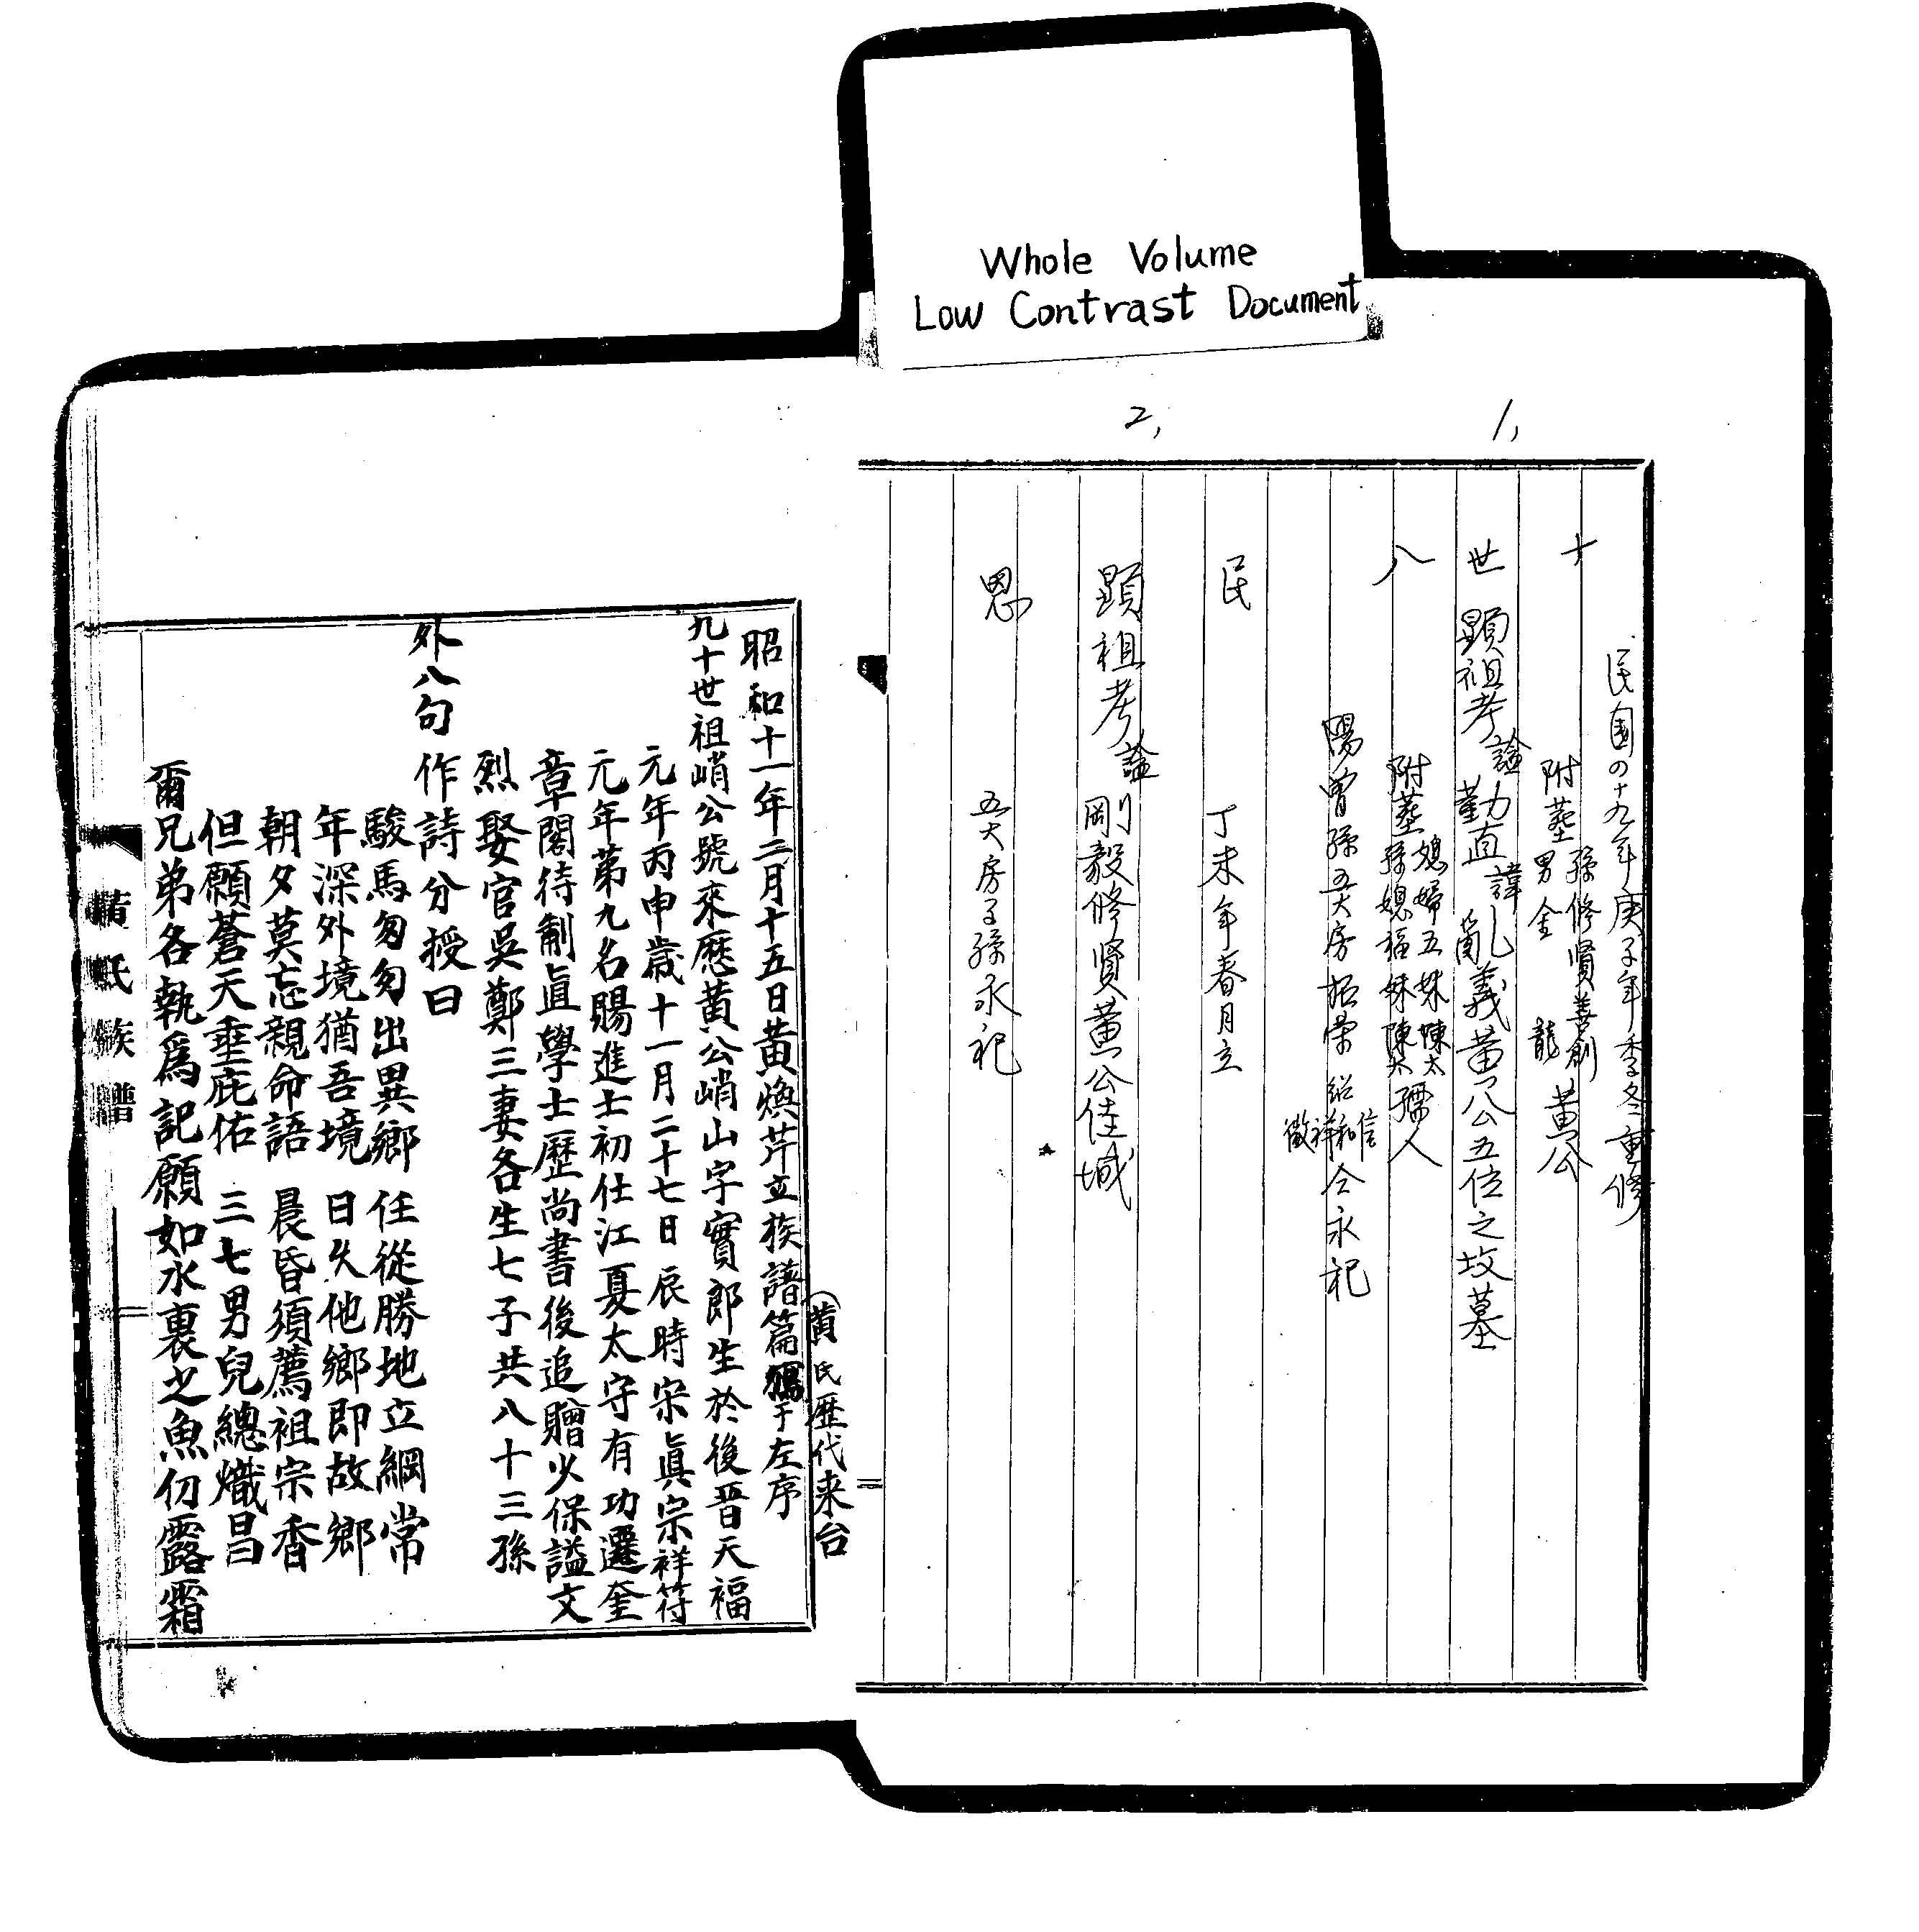 Whole Volume
Low Contrast Document
1,
民国の十九年庚子年季冬重修
十
附塟
孫修賢善創
男金 龍
黃公
世
顯祖考諡勤直諱乿義黃公五位之坟墓
八
附塟
媳婦五妹陳太
孫媳福妹陳太
孺人
陽曾孫五大房振榮
信和祥徵
仝永祀
民
丁未年春月立
2,
顯祖考諡剛毅修賢黃公佳城
恩
五大房子孫永祀
黃氏歷代来台
昭和十一年二月十五日黃煥芹立族譜篇于左序
九十世祖峭公號來歷黃公峭山字實郎生於後晉天福
元年丙申歲十一月二十七日辰時宋眞宗祥符
元年第九名賜進士初仕江夏太守有功遷奎
章閣待制直學士歷尚書後追贈火保謚文
烈娶官吳鄭三妻各生七子共八十三孫
外八句作詩分授曰
駿馬匆匆出異鄉 任從勝地立綱常
年深外境猶吾境 日久他鄉即故鄉
朝夕莫忘親命語 晨昏須薦祖宗香
但願蒼天垂庇佑 三七男兒總熾昌
爾兄弟各執為記願如水裏之魚仞露霜
黃氏族譜